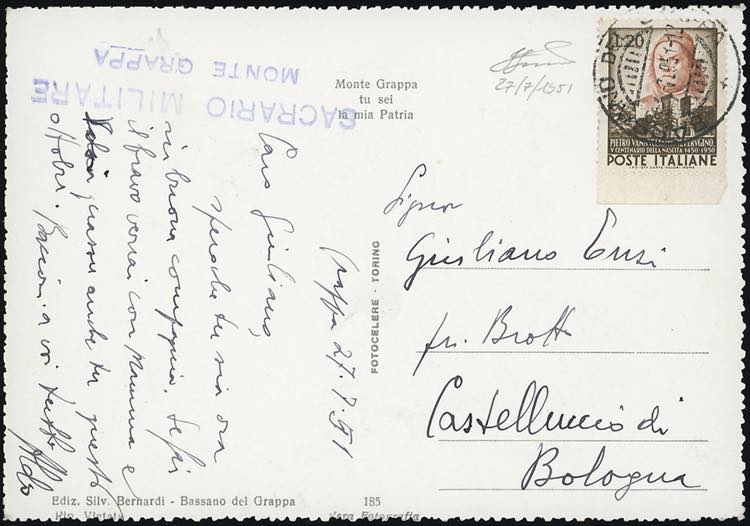 SACRARIO MILITARE
MONTE GRAPPA
Monte Grappa
tu sei
la mia Patria
27/7/1951
L.20
V CENTENARIO DELLA NASCITA 1450-1950
POSTE ITALIANE
Grappa 27.7.51
Caro Giuliano,
spero che tu sia ora
in buona compagnia. Se fai
il bravo verrai con Mamma e
quassù anche tu questo
ottobre. Bacioni a voi tutti
Aldo
FOTOCELERE - TORINO
Signor
Giuliano
fr. Brotto
Castelluccio di
Bologna
Ediz. Silv. Bernardi - Bassano del Grappa
185
Rip. Vietata
Vera Fotografia